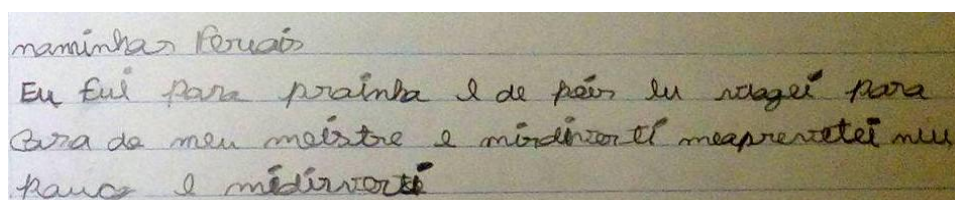 naminhas Feruais
Eu fui para prainha e de pois eu viagei para
Casa do meu meistre e mirdiverti meapreveitei miu
pauco e midirverti